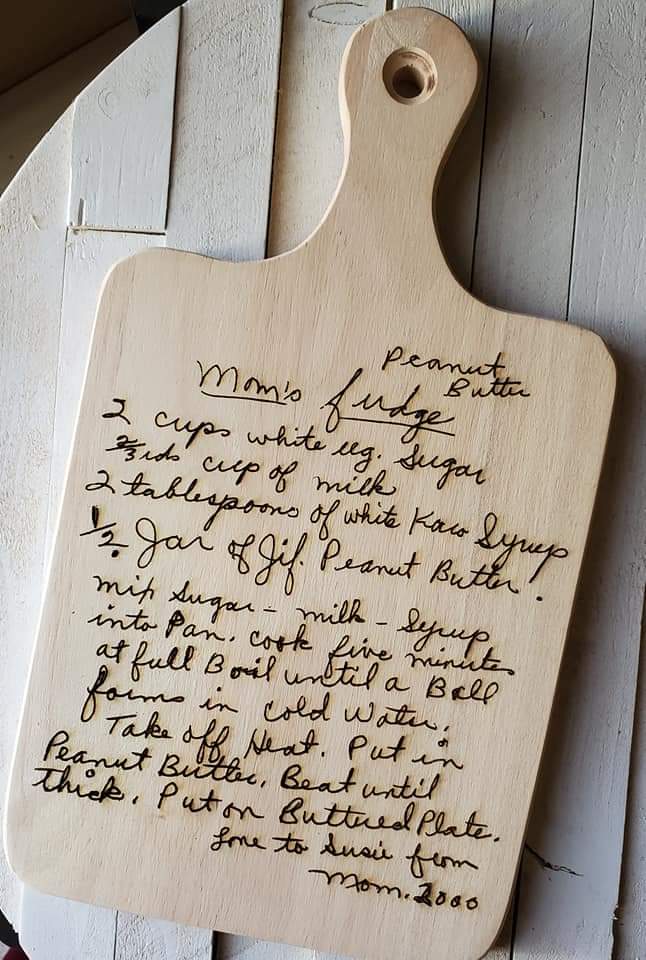 Peanut
Butter
Mom's fudge
2 cups white reg. Sugar
2/3rds cup of milk
2 tablespoons of white Karo Syrup
1/2 Jar of Jif. Peanut Butter.
mix Sugar - milk - Syrup
into Pan. cook five minutes
at full Boil until a Ball
forms in cold Water.
Take off Heat. Put in
Peanut Butter. Beat until
thick. Put on Buttered Plate.
Love to Susie from
Mom. 2000